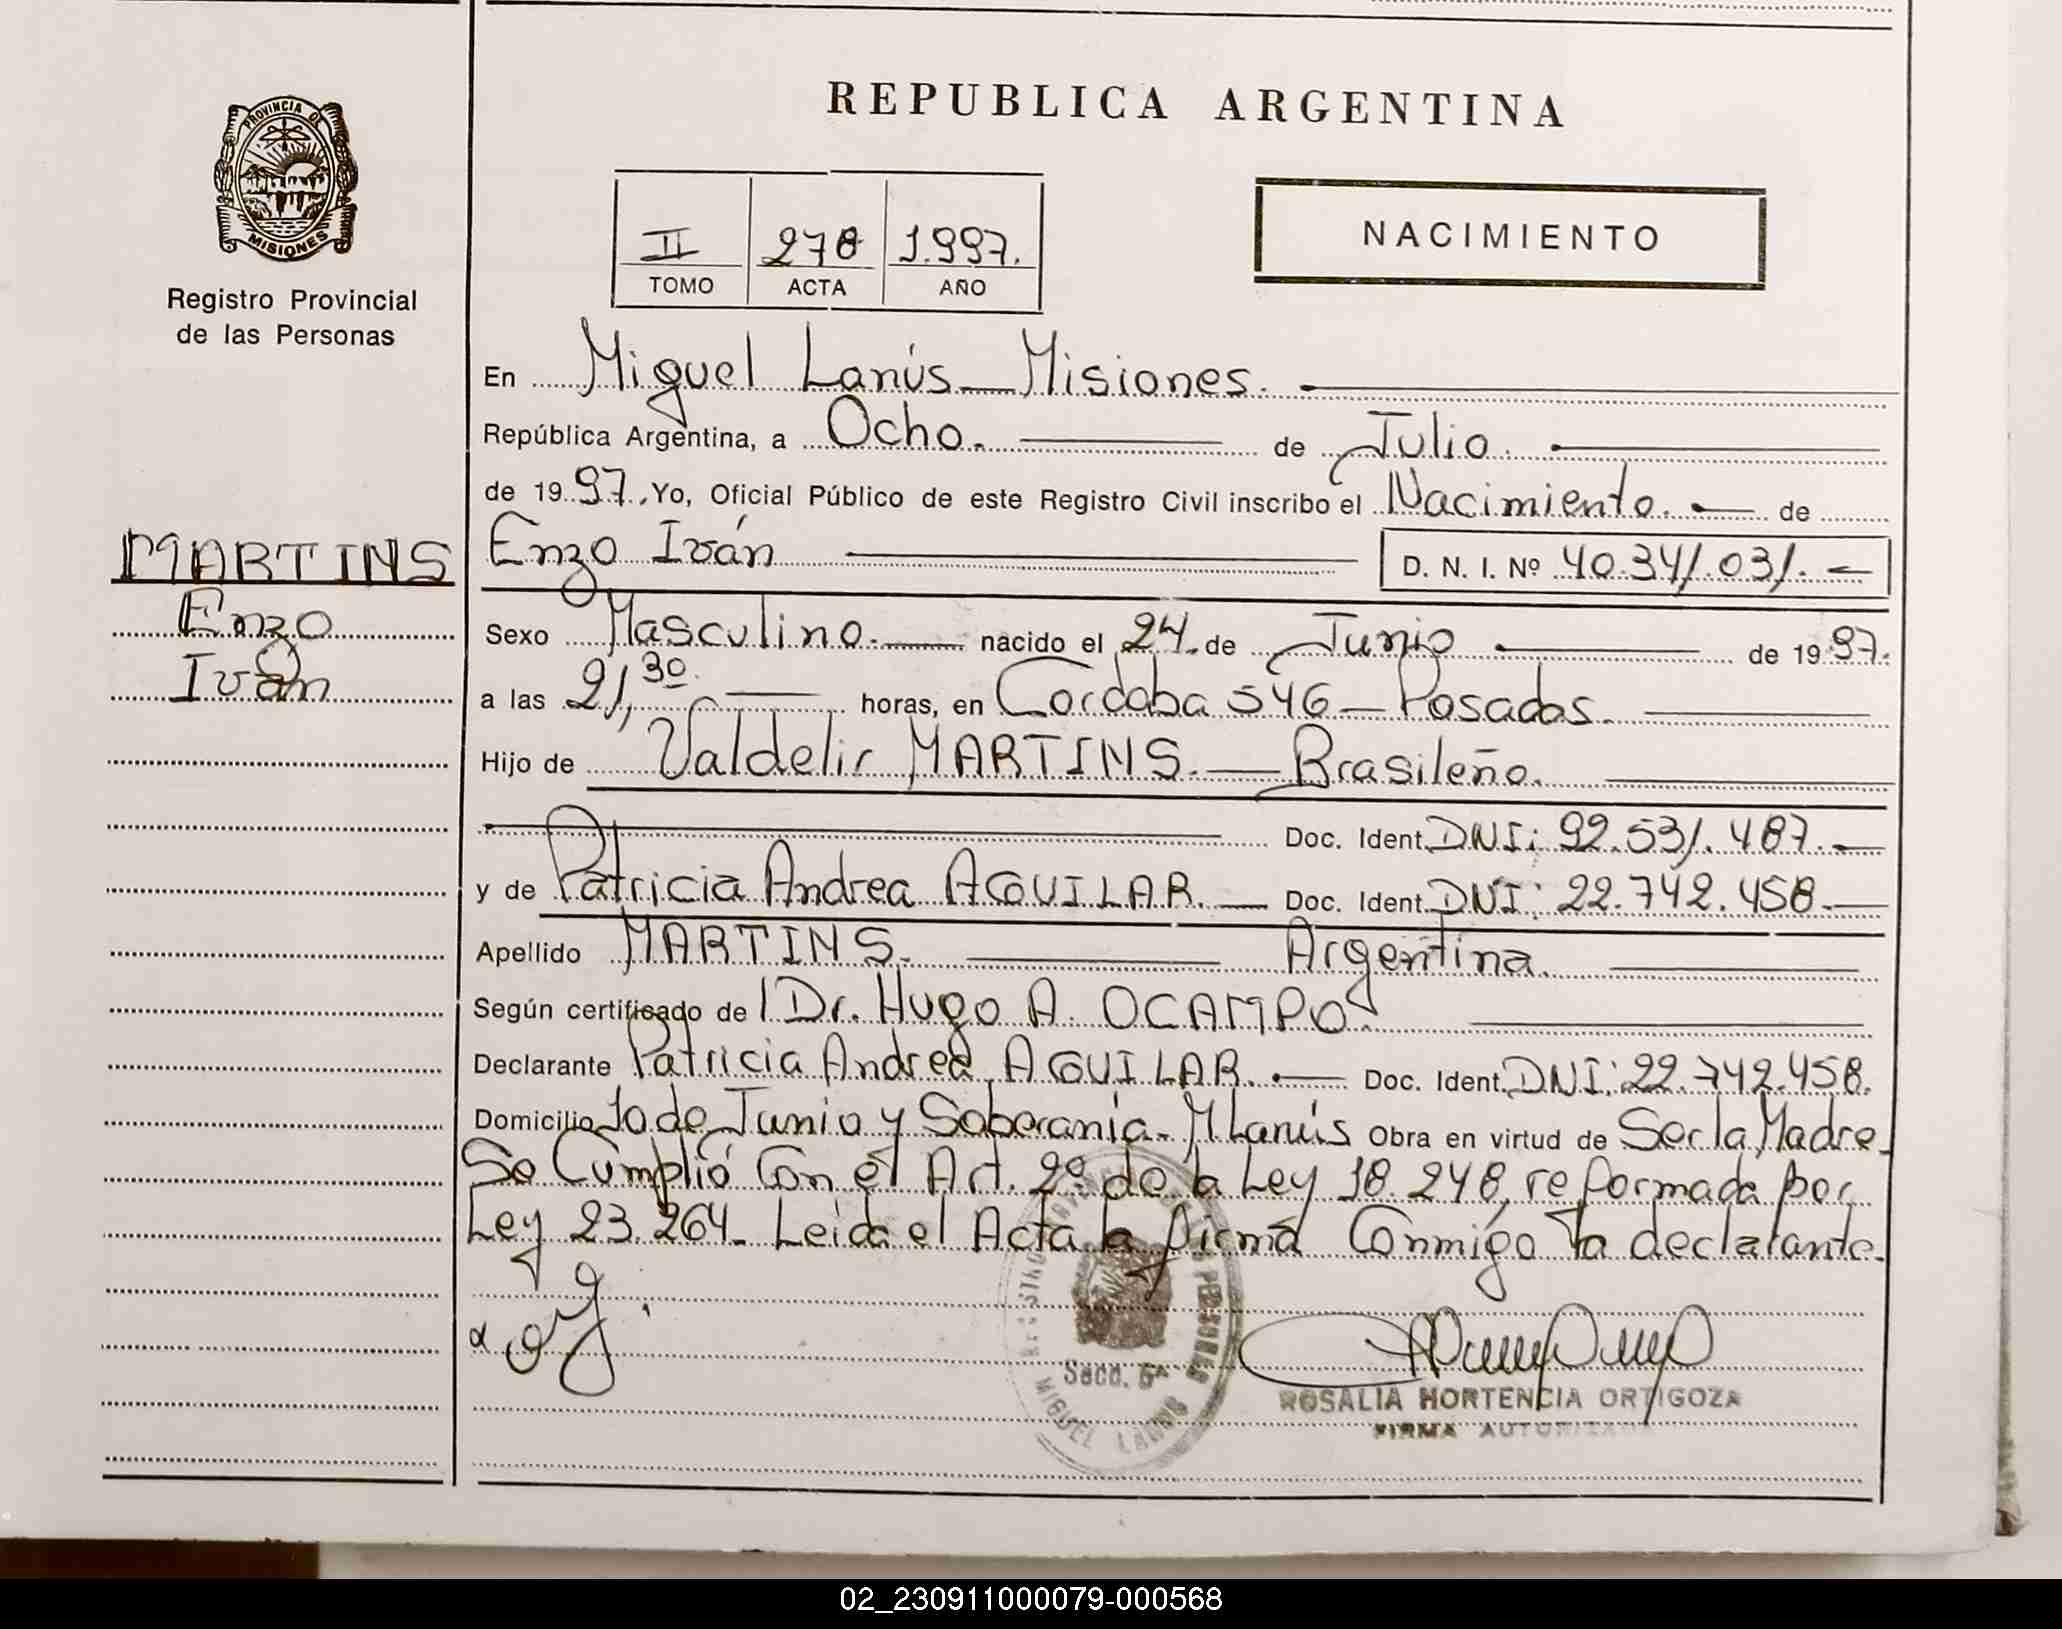 REPUBLICA ARGENTINA
PROVINCIA DE
MISIONES
Registro Provincial
de las Personas
II 278 1.997.
TOMO ACTA AÑO
NACIMIENTO
En Miguel Lanús — Misiones.
República Argentina, a Ocho. de Julio.
de 1997. Yo, Oficial Público de este Registro Civil inscribo el Nacimiento. de
MARTINS
Enzo
Iván
Enzo Iván D. N. I. Nº 40.341.031.
Sexo Masculino. nacido el 24 de Junio de 1997.
a las 21,30. horas, en Cordoba 546 — Posadas.
Hijo de Valdelir MARTINS. — Brasileño.
Doc. Ident. DNI: 92.531.487.
y de Patricia Andrea AGUILAR. — Doc. Ident. DNI: 22.742.458.
Apellido MARTINS. Argentina.
Según certificado del Dr. Hugo A. OCAMPO.
Declarante Patricia Andrea AGUILAR. — Doc. Ident. DNI: 22.742.458.
Domicilio 10 de Junio y Soberanía. M Lanús Obra en virtud de Ser la Madre.
Se Cumplió Con el Art. 2º de la Ley 18.248, reformada por
Ley 23.264. Leida el Acta la firma Conmigo la declarante.
Secc. 6ª
MIGUEL LANUS
ROSALIA HORTENCIA ORTIGOZA
FIRMA AUTORIZADA
02_230911000079-000568